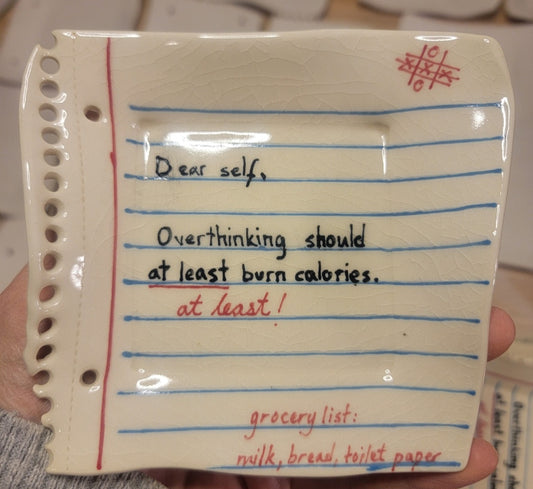 O
X X X
O
Dear self,
Overthinking should
at least burn calories.
at least!
grocery list:
milk, bread, toilet paper